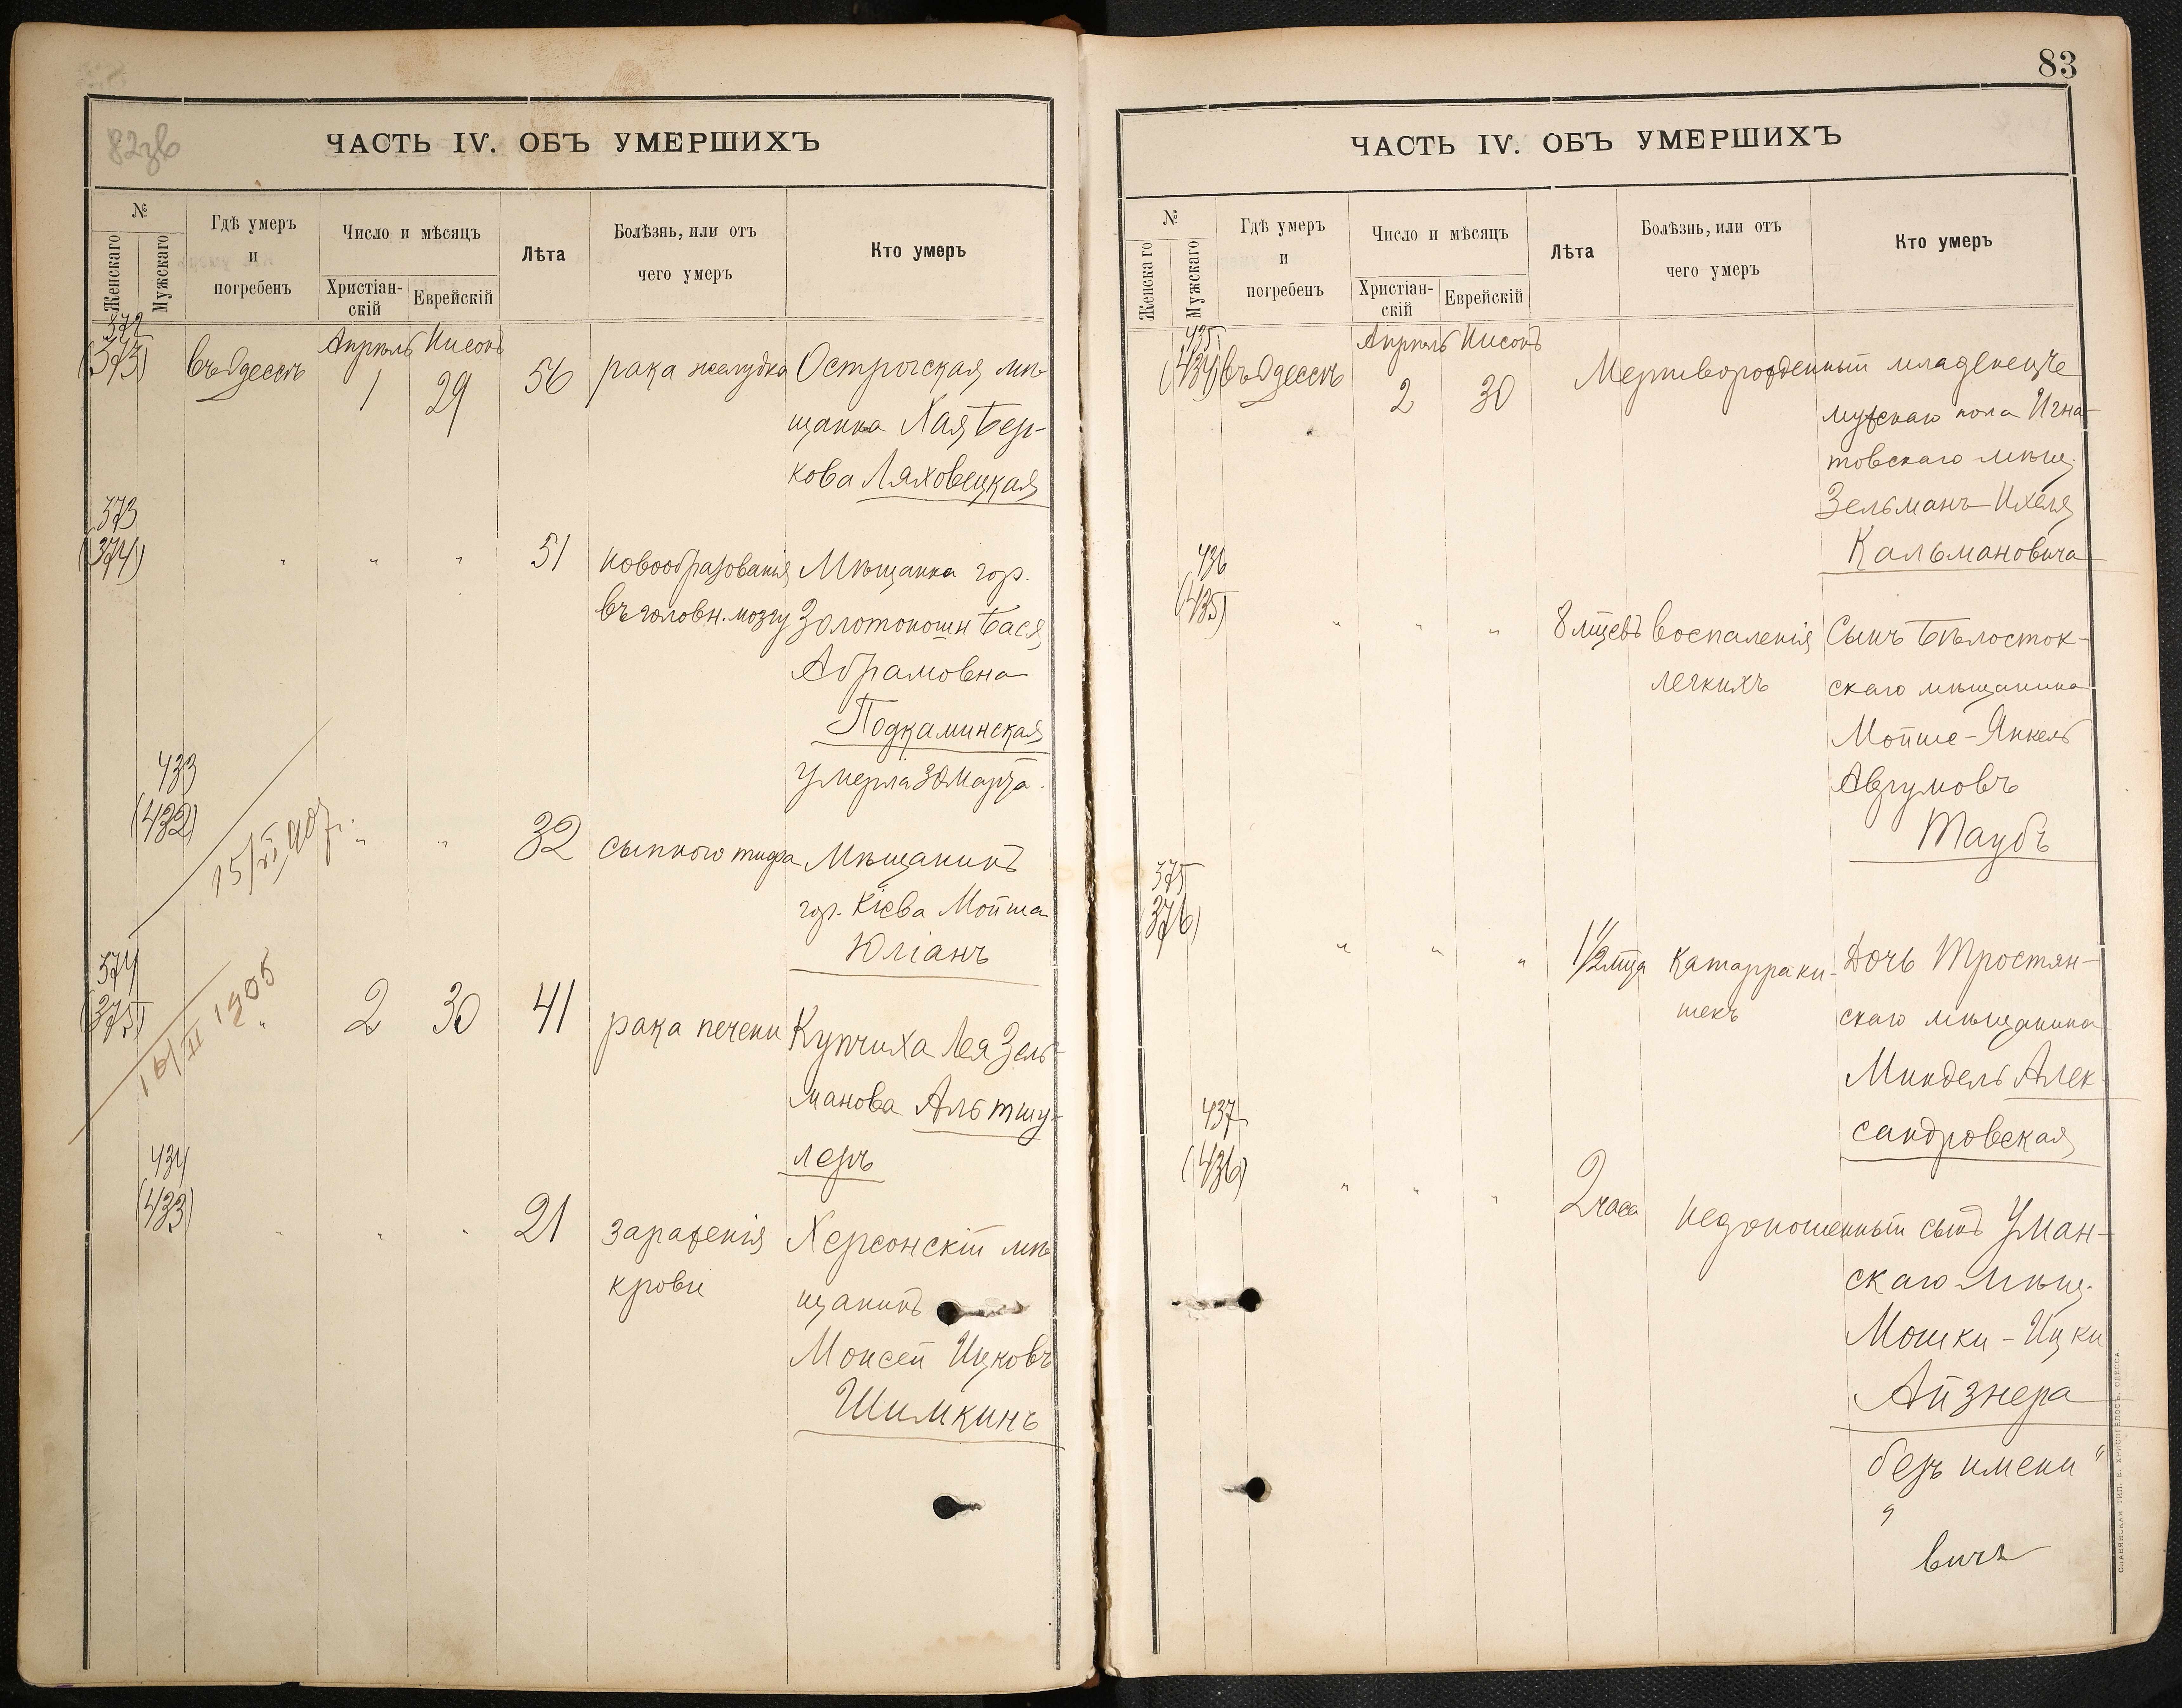 82зв
ЧАСТЬ IV. ОБЪ УМЕРШИХЪ
№
Женскаго
Мужскаго
Гдѣ умеръ
и
погребенъ
Число и мѣсяцъ
Христіан-
скій
Еврейскій
Лѣта
Болѣзнь, или отъ
чего умеръ
Кто умеръ
372
(373)
въ Одессѣ
Апрѣль Нисонъ
1 29
56
рака желудка
Острогская мѣ-
щанка Хая Бер-
кова Ляховецкая
373
(374)
" " "
51
новообразованія
въ головн. мозгу
Мѣщанка гор.
Золотоноши Бася
Абрамовна
Подкаминская
умерла 30 Марта.
433
(432)
15/VI 907 г.
" "
32
сыпного тифа
Мѣщанинъ
гор. Кіева Мойша
Юліанъ
374
(375)
16/II 1905
"
2 30
41
рака печени
Купчиха Лея Зель-
манова Альтшу-
леръ
434
(433)
" " "
21
зараженія
крови
Херсонскій мѣ-
щанинъ
Моисей Ицковъ
Шимкинъ
83
ЧАСТЬ IV. ОБЪ УМЕРШИХЪ
№
Женскаго
Мужскаго
Гдѣ умеръ
и
погребенъ
Число и мѣсяцъ
Христіан-
скій
Еврейскій
Лѣта
Болѣзнь, или отъ
чего умеръ
Кто умеръ
435
(434)
въ Одессѣ
Апрѣль Нисонъ
2 30
Мертворожденный младенецъ
мужскаго пола Игна-
товскаго мѣщ.
Зельманъ-Ихеля
Кальмановича
436
(435)
" " "
8 мцевъ
воспаленія
легкихъ
Сынъ Бѣлосток-
скаго мѣщанина
Мойше-Янкель
Авзумовъ
Таубъ
375
(376)
" " "
1 1/2 мца
Катарра ки-
шекъ
Дочь Тростян-
скаго мѣщанина
Миндель Алек-
сандровская
437
(436)
" " "
2 часа
недоношенный сынъ Уман-
скаго мѣщ.
Мошки-Ицки
Айзнера
безъ имени "
"
вичъ
СЛАВЯНСКАЯ ТИП. Е. ХРИСОГЕЛОСЪ, ОДЕССА